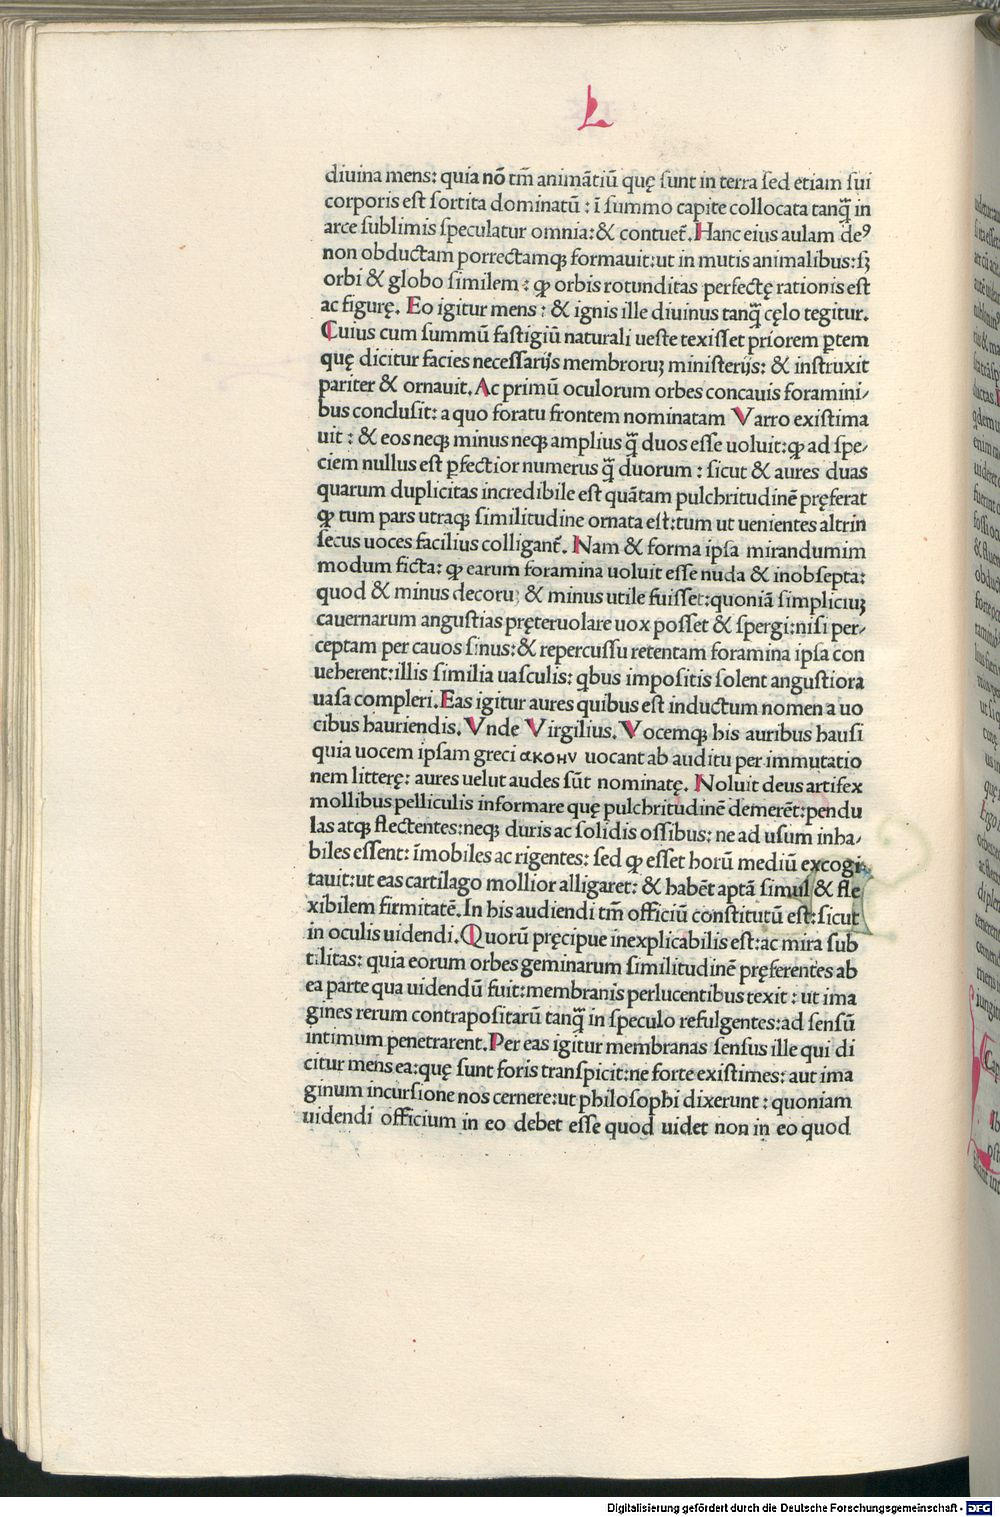 L
diuina mens: quia nō tm̄ animātiū quę sunt in terra sed etiam sui
corporis est sortita dominatū : ī summo capite collocata tanq̄ in
arce sublimis speculatur omnia: & contuet̄. Hanc eius aulam deꝰ
non obductam porrectamqꝫ formauit: ut in mutis animalibus: sꝫ
orbi & globo similem : ꝙ orbis rotunditas perfectę rationis est
ac figurę. Eo igitur mens : & ignis ille diuinus tanq̄ cęlo tegitur.
Cuius cum summū fastigiū naturali ueste texisset priorem ꝑtem
quę dicitur facies necessarijs membroruꝫ ministerijs: & instruxit
pariter & ornauit. Ac primū oculorum orbes concauis foramini/
bus conclusit: a quo foratu frontem nominatam Varro existima
uit : & eos neqꝫ minus neqꝫ amplius q̄ duos esse uoluit: ꝙ ad spe/
ciem nullus est ꝑfectior numerus q̄ duorum : sicut & aures duas
quarum duplicitas incredibile est quātam pulchritudinē pręferat
ꝙ tum pars utraqꝫ similitudine ornata est: tum ut uenientes altrin
secus uoces facilius colligant̄. Nam & forma ipsa mirandumim
modum ficta: ꝙ earum foramina uoluit esse nuda & inobsepta:
quod & minus decoruꝫ & minus utile fuisset: quoniā simpliciuꝫ
cauernarum angustias pręteruolare uox posset & spergi: nisi per/
ceptam per cauos sinus: & repercussu retentam foramina ipsa con
ueherent: illis similia uasculis: qbus impositis solent angustiora
uasa compleri. Eas igitur aures quibus est inductum nomen a uo
cibus hauriendis. Vnde Virgilius. Vocemqꝫ his auribus hausi
quia uocem ipsam greci ακουν uocant ab auditu per immutatio
nem litterę: aures uelut audes sūt nominatę. Noluit deus artifex
mollibus pelliculis informare quę pulchritudinē demerēt: pendu
las atqꝫ flectentes: neqꝫ duris ac solidis ossibus: ne ad usum inha/
biles essent: īmobiles ac rigentes: sed ꝙ esset horū mediū excogi
tauit: ut eas cartilago mollior alligaret: & habēt aptā simul & fle
xibilem firmitatē. In his audiendi tm̄ officiū constitutū est: sicut
in oculis uidendi. Quorū pręcipue inexplicabilis est: ac mira sub
tilitas: quia eorum orbes geminarum similitudinē pręferentes ab
ea parte qua uidendū fuit: membranis perlucentibus texit : ut ima
gines rerum contrapositarū tanq̄ in speculo refulgentes: ad sensū
intimum penetrarent. Per eas igitur membranas sensus ille qui di
citur mens ea: quę sunt foris transpicit: ne forte existimes: aut ima
ginum incursione nos cernere: ut philosophi dixerunt : quoniam
uidendi officium in eo debet esse quod uidet non in eo quod
Digitalisierung gefördert durch die Deutsche Forschungsgemeinschaft - DFG